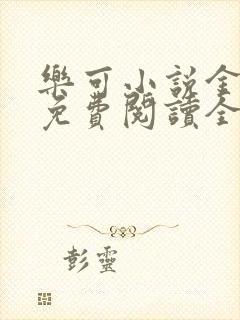 樂可小說全
免費閱讀全
彭靈